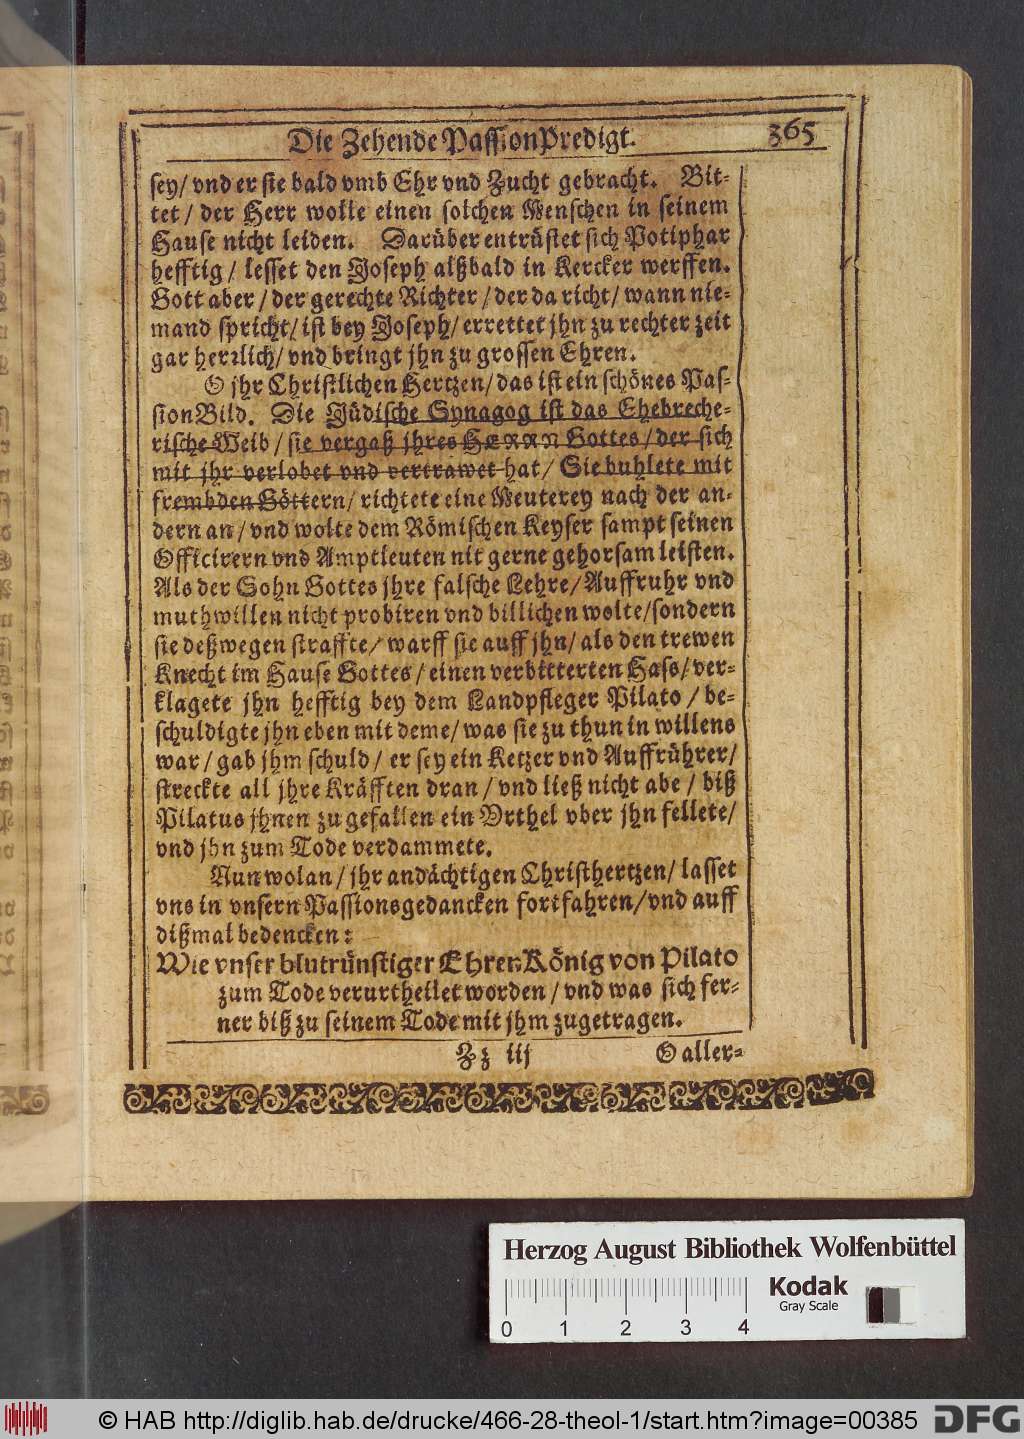 Die Zehende PassionPredigt. 365
sey/ vnd er sie bald vmb Ehr vnd Zucht gebracht. Bit-
tet/ der Herr wolle einen solchen Menschen in seinem
Hause nicht leiden. Darüber entrüstet sich Potiphar
hefftig/ lesset den Joseph alßbald in Kercker werffen.
Gott aber/ der gerechte Richter/ der da richt/ wann nie-
mand spricht/ ist bey Joseph/ errettet jhn zu rechter zeit
gar herzlich/ vnd bringt jhn zu grossen Ehren.
O jhr Christlichen Hertzen/ das ist ein schönes Pas-
sionBild. Die Jüdische Synagog ist das Ehebreche-
rische Weib/ sie vergaß jhres HERRN Gottes/ der sich
mit jhr verlobet vnd vertrawet hat/ Sie buhlete mit
frembden Göttern/ richtete eine Meuterey nach der an-
dern an/ vnd wolte dem Römischen Keyser sampt seinen
Officirern vnd Amptleuten nit gerne gehorsam leisten.
Als der Sohn Gottes jhre falsche Lehre/ Auffruhr vnd
muthwillen nicht probiren vnd billichen wolte/ sondern
sie deßwegen straffte/ warff sie auff jhn/ als den trewen
Knecht im Hause Gottes/ einen verbitterten Hass/ ver-
klagete jhn hefftig bey dem Landpfleger Pilato/ be-
schuldigte jhn eben mit deme/ was sie zu thun in willens
war/ gab jhm schuld/ er sey ein Ketzer vnd Auffrührer/
streckte all jhre Kräfften dran/ vnd ließ nicht abe/ biß
Pilatus jhnen zu gefallen ein Vrthel vber jhn fellete/
vnd jhn zum Tode verdammete.
Nun wolan/ jhr andächtigen Christhertzen/ lasset
vns in vnsern Passionsgedancken fortfahren/ vnd auff
dißmal bedencken:
Wie vnser blutrünstiger EhrenKönig von Pilato
zum Tode verurtheilet worden/ vnd was sich fer-
ner biß zu seinem Tode mit jhm zugetragen.
Zz iij O aller-
Herzog August Bibliothek Wolfenbüttel
Kodak
Gray Scale
0 1 2 3 4
© HAB http://diglib.hab.de/drucke/466-28-theol-1/start.htm?image=00385 DFG